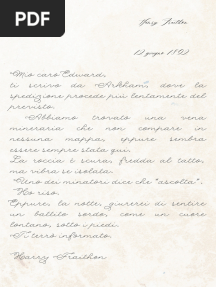 PDF
12 giugno 1892
Mio caro Edward,
ti scrivo da Arkham, dove la
spedizione procede più lentamente del
previsto.
Abbiamo trovato una vena
mineraria che non compare in
nessuna mappa, eppure sembra
essere sempre stata qui.
La roccia è scura, fredda al tatto,
ma vibra se isolata.
Uno dei minatori dice che "ascolta".
Ho riso.
Eppure, la notte, giurerei di sentire
un battito sordo, come un cuore
lontano, sotto i piedi.
Ti terrò informato.
Harry